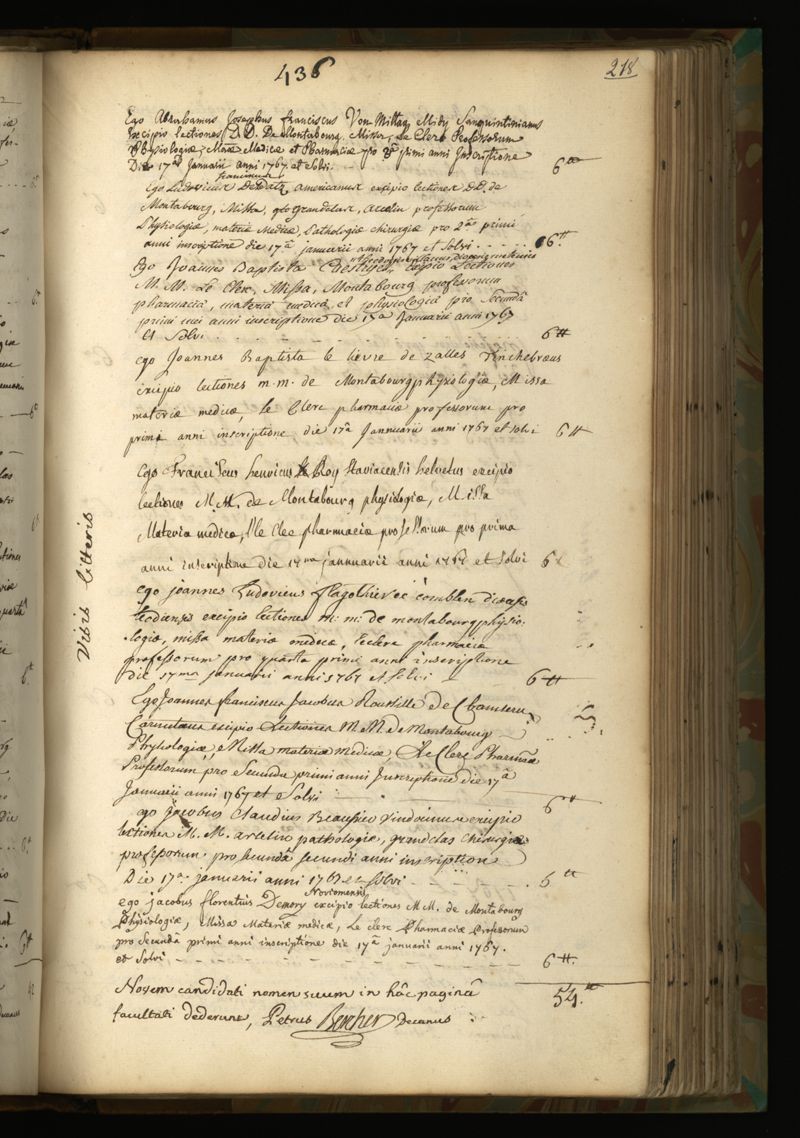 436
218
Ego Abrahamus Josephus Franciscus Von-Mittag Midy Sanquintinianus
Excipio lectiones D.D. De Montabourg, Missa, Le Clerc Professorum
Physiologiæ, Mat. Medicæ et Pharmaciæ pro primi anni Inscriptione
Die 17â Januarii anni 1767. et solvi. 6tt
franciscus
Ego Ludovicus americanus excipio lectiones D.D. de
Montabourg, Missa, grandelas, professorum
Physiologiæ, materiæ Medicæ, Pathologiæ chirurgiæ pro 2â primi
anni inscriptione die 17â januarii anni 1767 et solvi . . . . . 6tt
Ego Joannes Baptista excipio Lectiones
M. M. Le Clerc, Missa, Montabourg professorum
pharmacia, materia medica et physiologia pro secundâ
primi mei anni inscriptione die 17â Januarii anni 1767
et solvi. 6tt
ego Joannes Baptista le lievre de zalles
excipio lectiones m.m. de Montabourg physiologiæ, Missa
materiæ medicæ, le Clerc pharmaciæ professorum pro
prima anni inscriptione die 17â Jannuarii anni 1767 et solvi 6tt
Ego Franciscus henricus le Roy Staviacensis helvetus excipio
lectiones M.M. de Montabourg physiologiæ, Missa
Materia medicæ, le Clec pharmaciæ professorum pro prima
anni inscriptione die 17ma jannuarii anni 1767 et solvi 6
Vibis litteris
ego joannes Ludovicus
leodiensis excipio lectiones m: m: de montabourg physio-
-logiæ, missa materiæ medicæ, leclerc pharmaciæ
professorum pro quarta primi anni inscriptione
die 17ma januarii anni 1767 et solvi 6tt
Ego Joannes franciscus Jacobus Roussille de Chamseru
Carnutæus excipio Lectiones M.M. de Montabourg
Physiologiæ, Missa materiæ medicæ, Le Clerc Pharmaciæ
Professorum, pro secunda primi anni Inscriptione die 17â
Januarii anni 1767 et solvi 6tt
ego jacobus Claudius Beaussier vindocinus excipio
lectiones M. M. arcelin pathologiæ, grandclas chirurgiæ
professorum, pro secundâ secundi anni inscription
Die 17â januarii anni 1767 et solvi 6tt
Noviomensis
ego jacobus florentius Demory excipio lectiones M M. de Montabourg
Physiologiæ, Missa Materiæ medicæ, Le clerc Pharmaciæ Professorum
pro secundâ primi anni inscriptione die 17â januarii anni 1767.
et solvi 6tt.
Novem candidati nomen suum in hâc paginâ 54.tt
facultati dederunt, Petrus Bercher Decanus